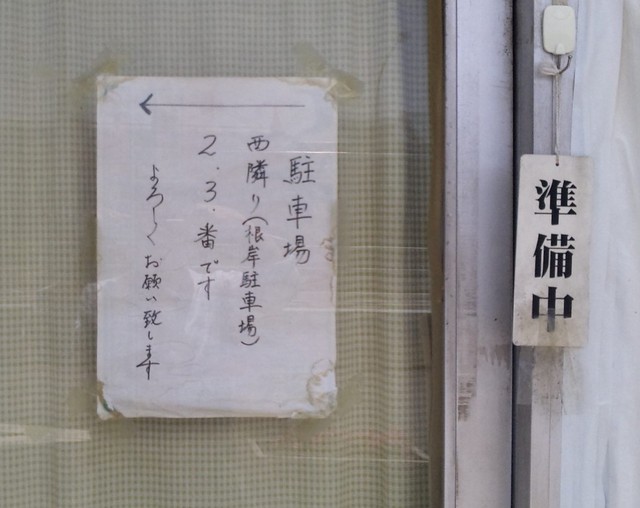 駐車場
西隣り(根岸駐車場)
2.3.番です
よろしくお願い致します
準備中